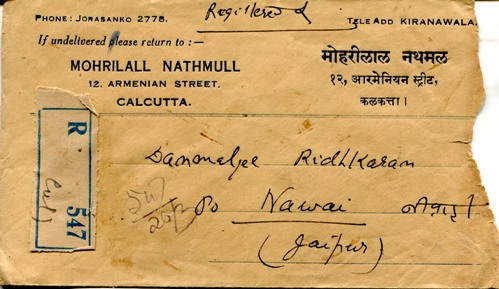 Registered
PHONE: JORASANKO 2778.
TELE ADD KIRANAWALA.
If undelivered please return to :—
MOHRILALL NATHMULL
12. ARMENIAN STREET.
CALCUTTA.
मोहरीलाल नथमल
१२, आरमेनियन स्ट्रीट,
कलकत्ता।
R
547
Ridhkaran
Po Nawai
(Jaipur)